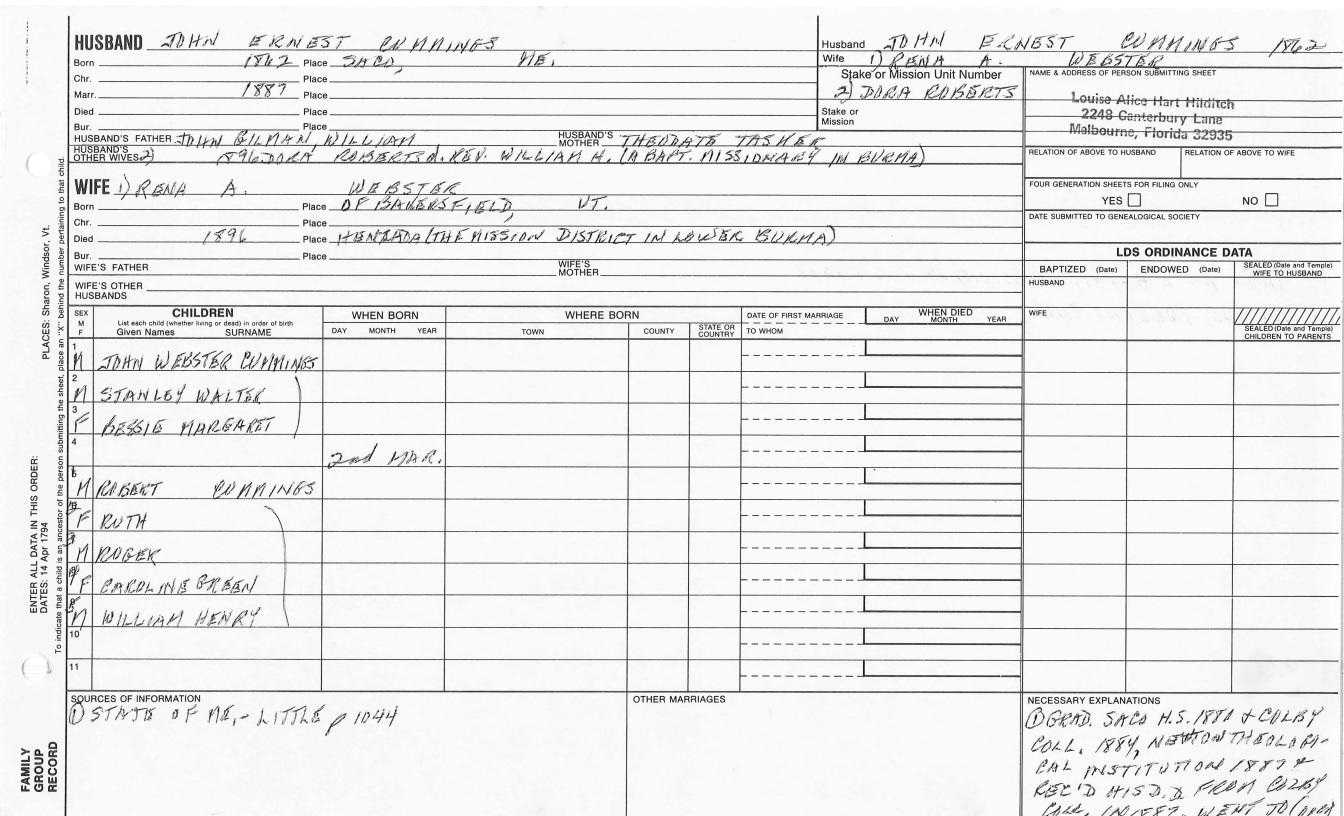 HUSBAND JOHN ERNEST CUMMINGS
Born 1862 Place SACO, ME.
Chr. Place
Marr. 1887 Place
Died Place
Bur. Place
HUSBAND'S FATHER JOHN GILMAN, WILLIAM HUSBAND'S MOTHER THEODATE TASKER
HUSBAND'S OTHER WIVES 2) 1896 DORA ROBERTS d. REV. WILLIAM H. (A BAPT. MISSIONARY IN BURMA)
WIFE 1) RENA A. WEBSTER
Born Place OF BAKERSFIELD, VT.
Chr. Place
Died 1896 Place HENZADA (THE MISSION DISTRICT IN LOWER BURMA)
Bur. Place
WIFE'S FATHER WIFE'S MOTHER
WIFE'S OTHER HUSBANDS
Husband JOHN ERNEST CUMMINGS 1862
Wife 1) RENA A. WEBSTER
Stake or Mission Unit Number
2) DORA ROBERTS
Stake or Mission
NAME & ADDRESS OF PERSON SUBMITTING SHEET
Louise Alice Hart Hilditch
2248 Canterbury Lane
Malbourne, Florida 32935
RELATION OF ABOVE TO HUSBAND RELATION OF ABOVE TO WIFE
FOUR GENERATION SHEETS FOR FILING ONLY
YES NO
DATE SUBMITTED TO GENEALOGICAL SOCIETY
LDS ORDINANCE DATA
BAPTIZED (Date) ENDOWED (Date) SEALED (Date and Temple) WIFE TO HUSBAND
HUSBAND
WIFE
SEALED (Date and Temple) CHILDREN TO PARENTS
SEX M F
CHILDREN
List each child (whether living or dead) in order of birth
Given Names SURNAME
WHEN BORN
DAY MONTH YEAR
WHERE BORN
TOWN COUNTY STATE OR COUNTRY
DATE OF FIRST MARRIAGE
TO WHOM
WHEN DIED
DAY MONTH YEAR
1 M JOHN WEBSTER CUMMINGS
2 M STANLEY WALTER
3 F BESSIE MARGARET
4 2nd MAR.
M ROBERT CUMMINGS
F RUTH
M ROGER
F CAROLINE GREEN
M WILLIAM HENRY
10
11
SOURCES OF INFORMATION
① STATE OF ME, - LITTLE p 1044
OTHER MARRIAGES
NECESSARY EXPLANATIONS
① GRAD. SACO H.S. 1880 & COLBY
COLL. 1884, NEWTON THEOLOGI-
CAL INSTITUTION 1887 &
REC'D HIS D.D FROM COLBY
COLL. IN WENT TO
PLACES: Sharon, Windsor, Vt.
ENTER ALL DATA IN THIS ORDER:
DATES: 14 Apr 1794
To indicate that a child is an ancestor of the person submitting the sheet, place an "X" behind the number pertaining to that child.
FAMILY
GROUP
RECORD